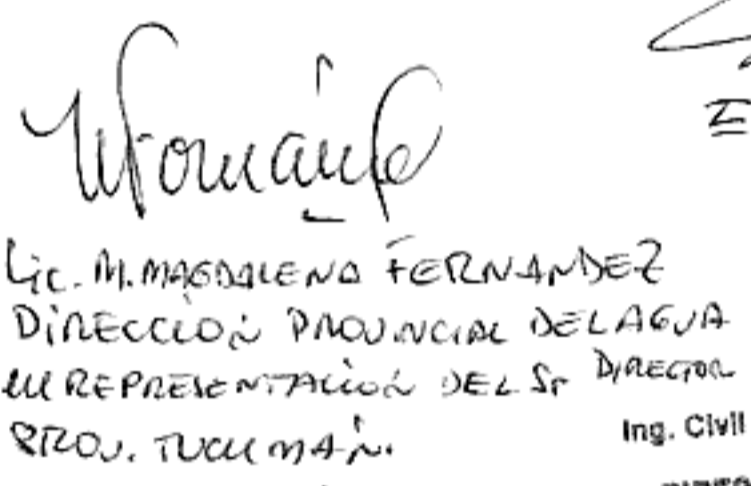 Lic. M. MAGDALENA FERNANDEZ
DIRECCIÓN PROVINCIAL DEL AGUA
EN REPRESENTACIÓN DEL Sr DIRECTOR
PROV. TUCUMÁN.
Ing. Civil